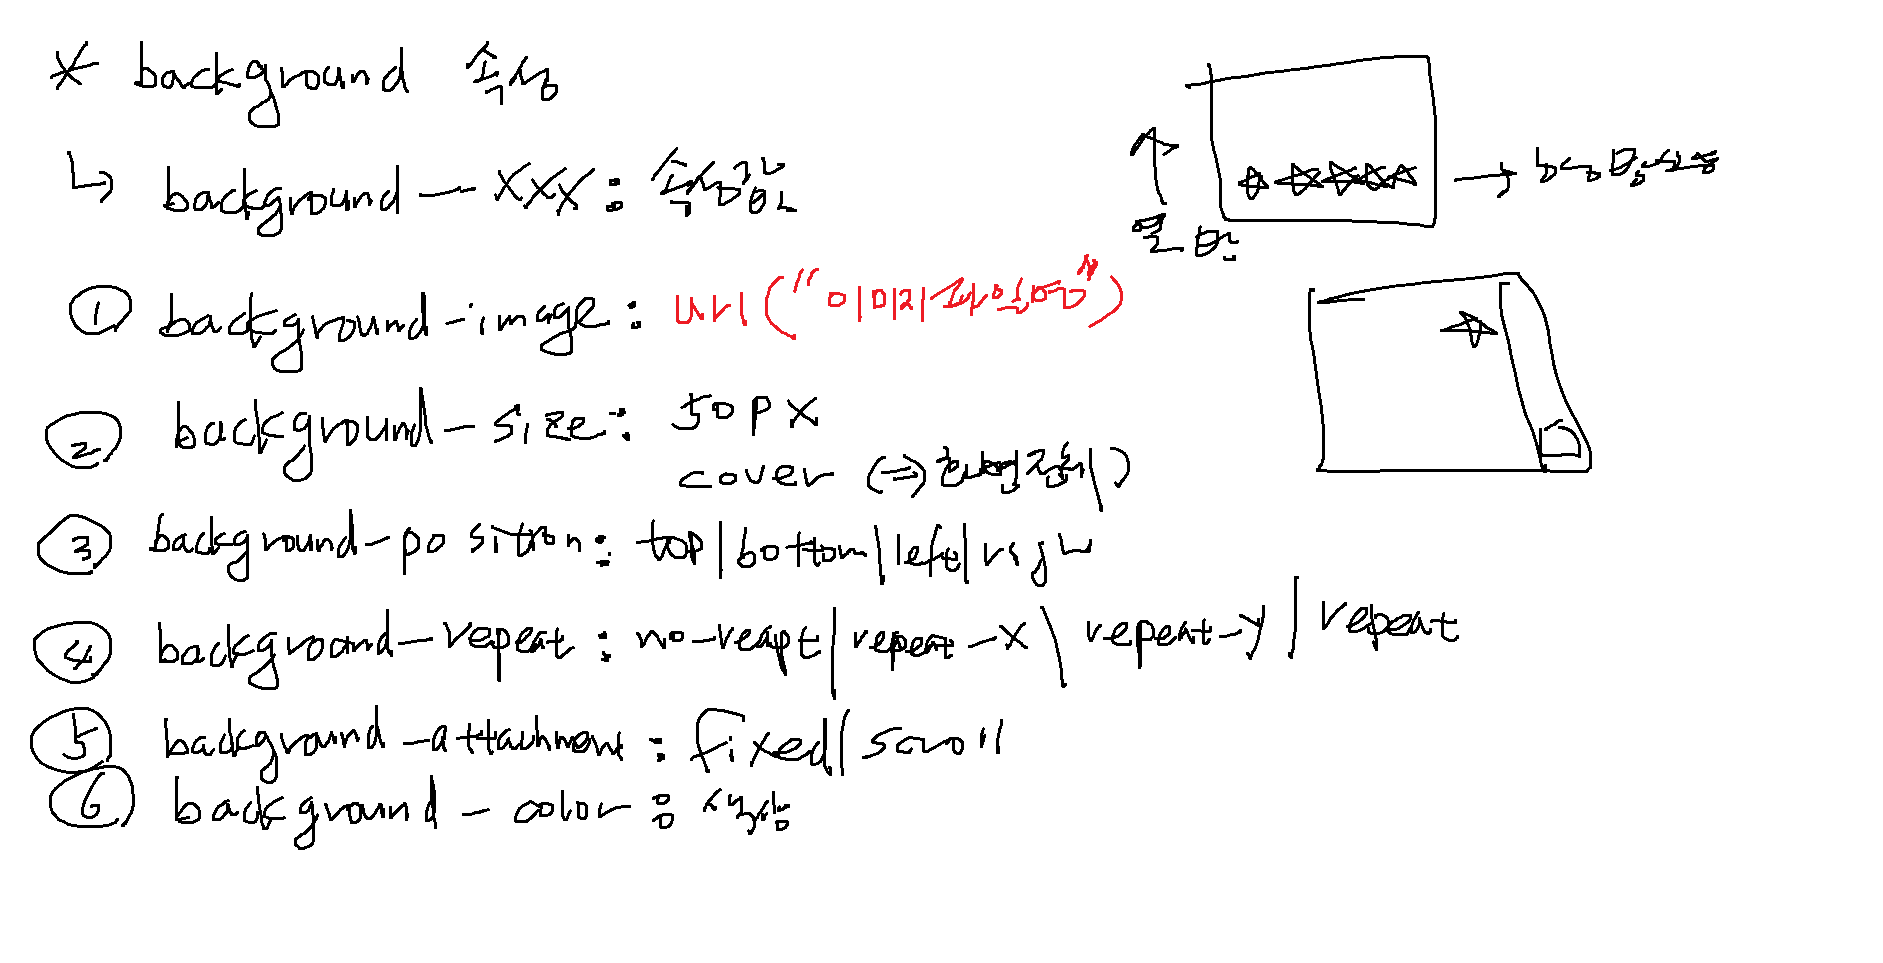 * background 속성
↳ background-xxx : 속성값
① background-image : url("이미지파일명")
② background-size : 50px
cover (⇒ 화면전체)
③ background-position : top|bottom|left|righ
④ background-repeat : no-reapt|repeat-x|repeat-y|repeat
⑤ background-attachment : fixed|scroll
⑥ background-color : 색상